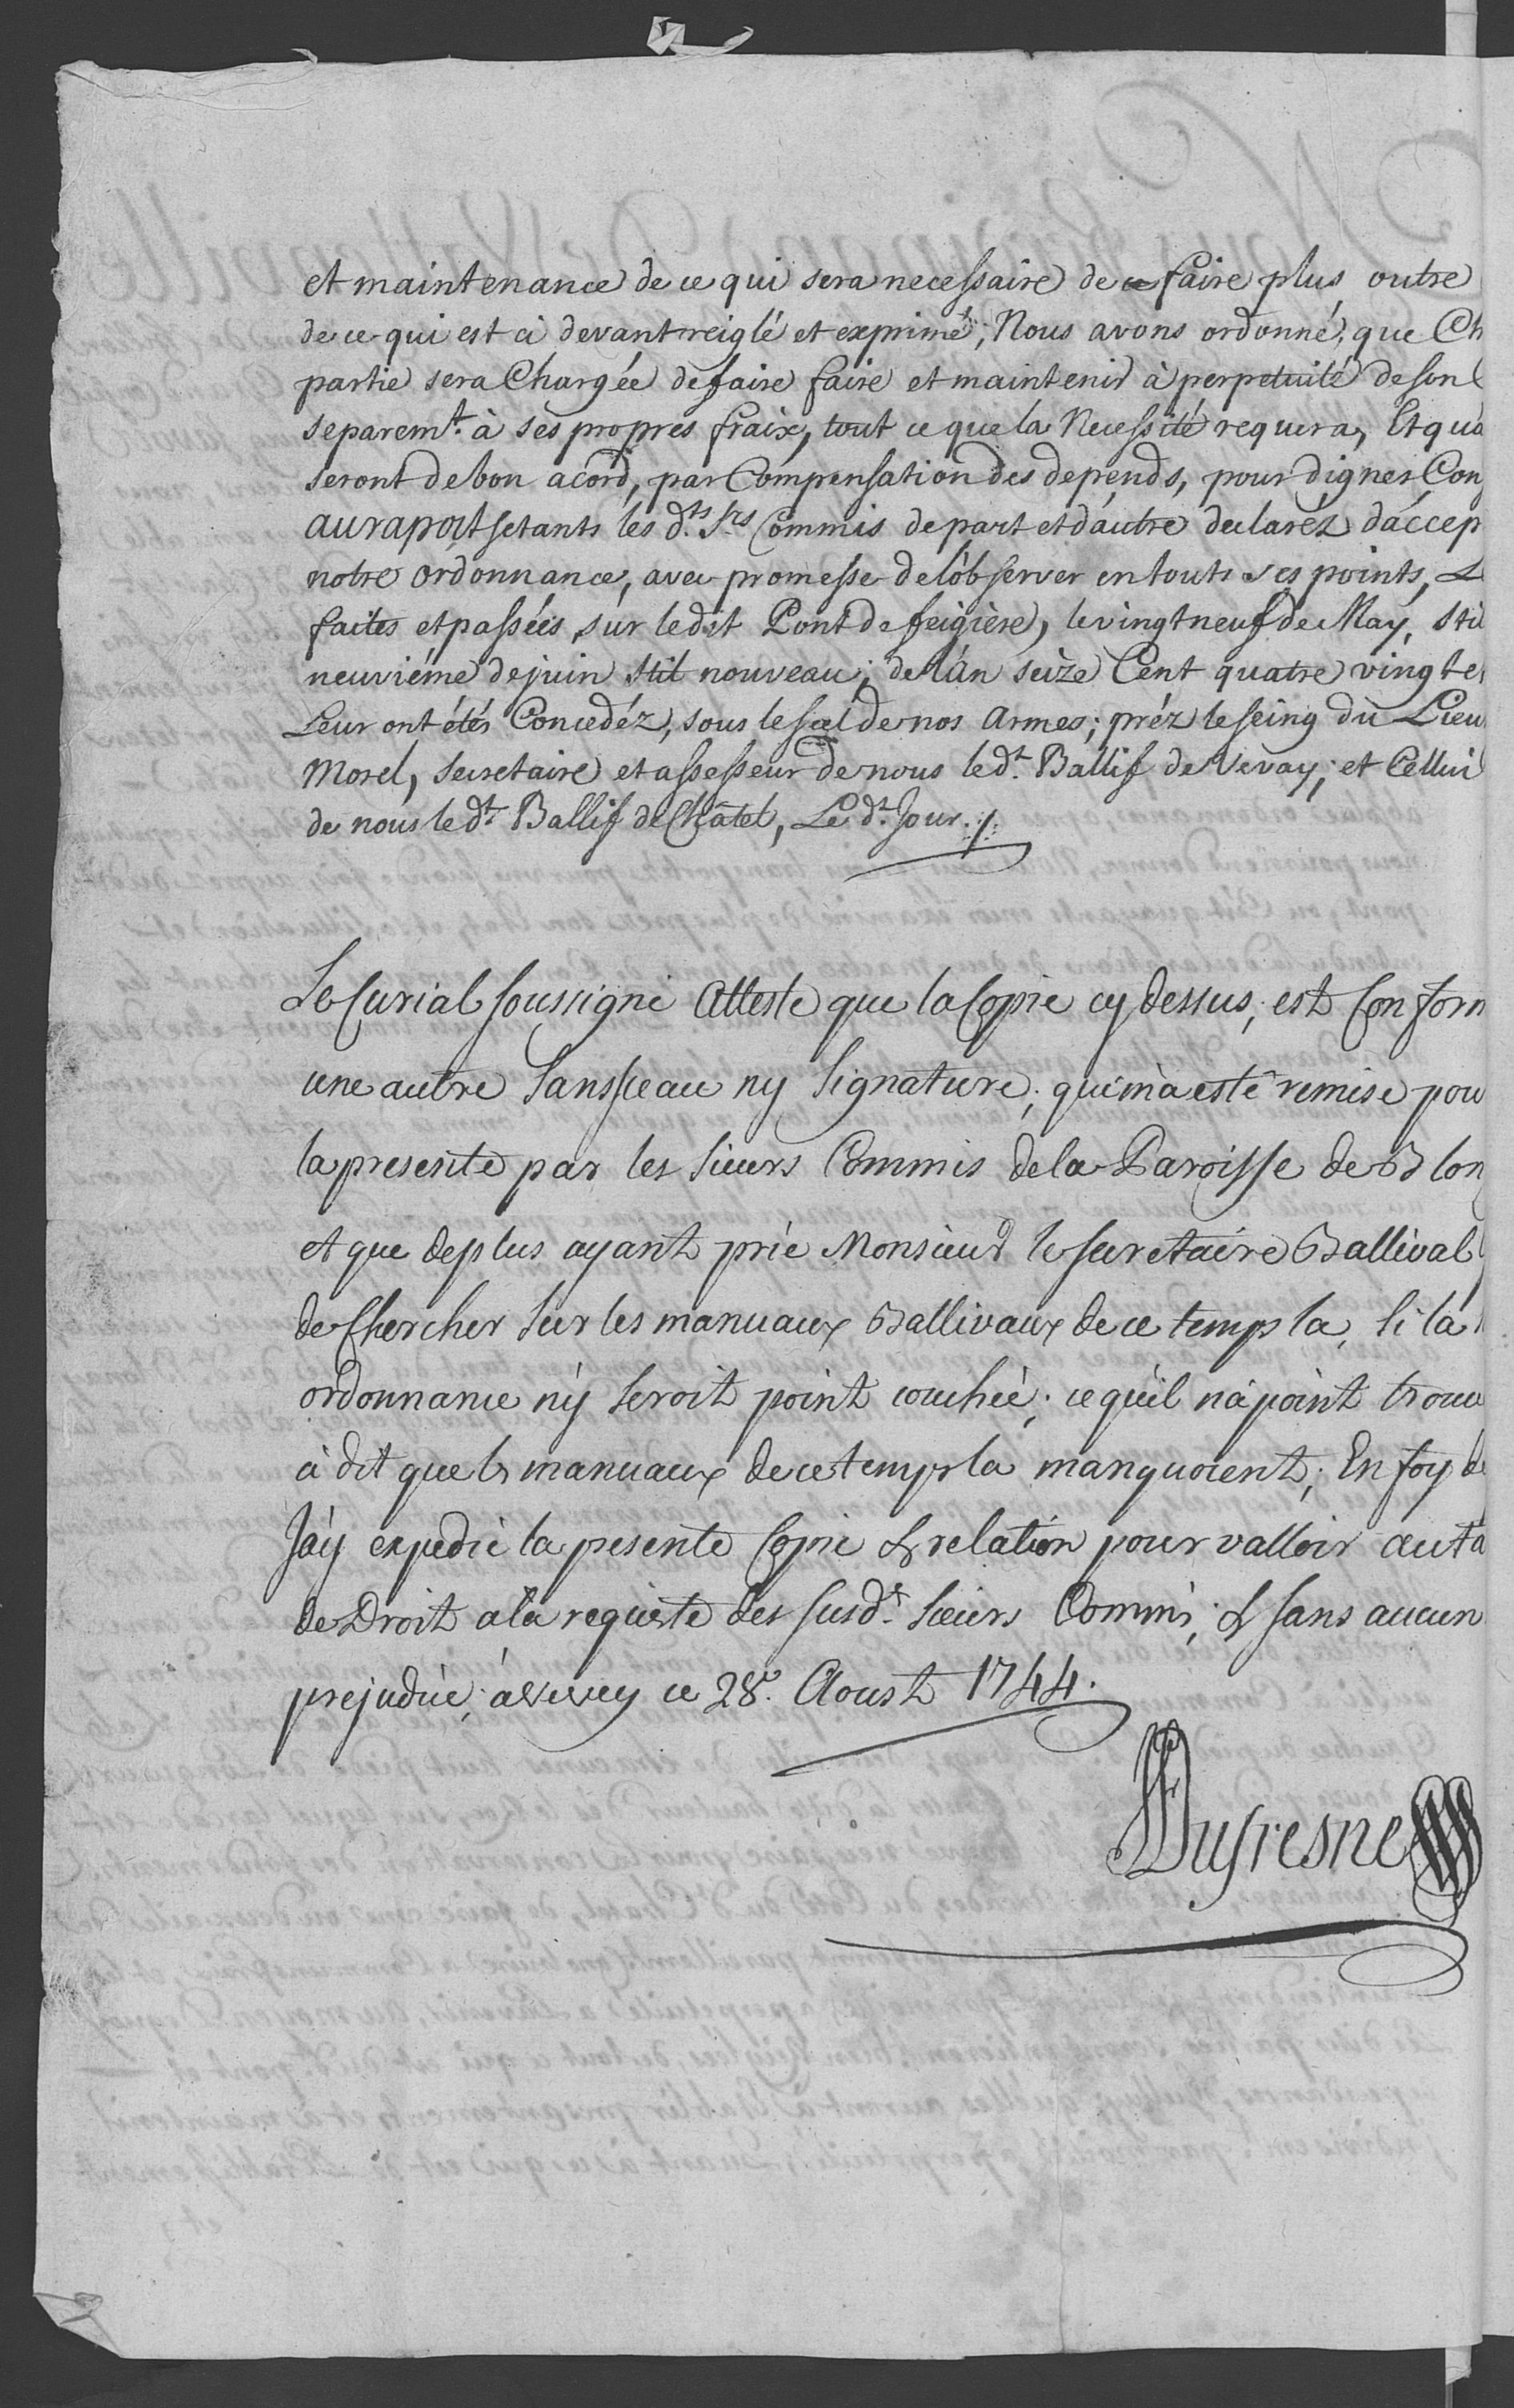 et maintenance de ce qui sera necessaire de faire plus outre
de ce qui est ci devant reiglé et exprimé; Nous avons ordonné, que Ch
partie sera Chargée de faire faire et maintenir à perpetuité de son
separemt. à ses propres fraix, tout ce que la Necessité requera, Et qu'a
seront de bon acord, par Compensation des depends, pour dignes Con
au raport setants les dts. Srs Commis de part et d'autre declarez d'accep
notre ordonnance, avec promesse de l'observer en touts ses points, L
faites et passées, sur le dit Pont de feigière, le vingt neuf de May, stil
neuviéme de juin stil nouveau; de l'an seize Cent quatre vingt e
Leur ont étés Concedéz, sous le scel de nos Armes; préz le seing du Lieu
Morel, secretaire et assesseur de nous le dt. Ballif de Vevay; et Cellui
de nous le dt. Ballif de Châtel, Le dt. Jour. /.
Le Curial soussigné Atteste que la Copie cy dessus, est Conform
une autre sans sceau ny signature, qui m'a esté remise pou
la presente par les sieurs Commis de la Paroisse de Blon
et que deplus ayant prié Monsieur le secretaire Ballival
de Chercher sur les manuaux Ballivaux de ce temps la, si la
ordonnance n'y seroit point couchée; ce qu'il n'a point trouv
à dit que les manuaux de ce temps la manquoient; En foy de
J'ay expedié la presente Copie & relation pour valloir auta
de Droit a la requiste des susdt. sieurs Commis, & sans aucun
prejudice; à Vevey ce 28e. Aoust 1744.
Dufresne